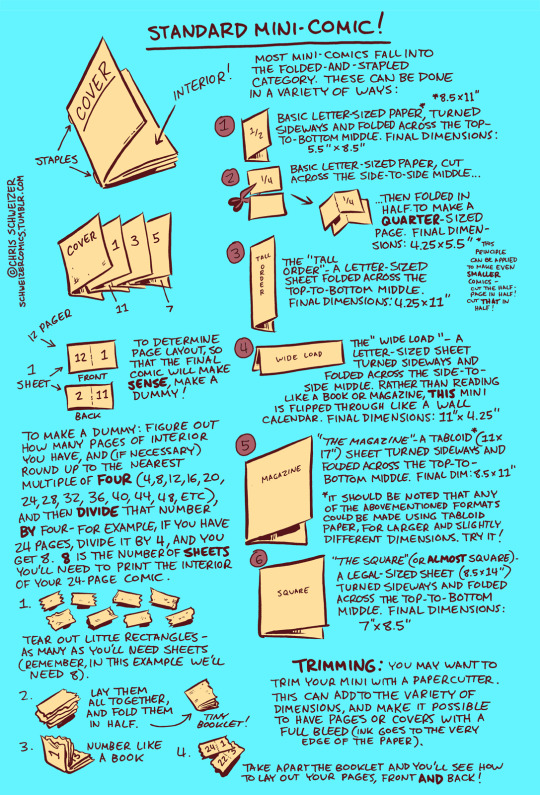 STANDARD MINI-COMIC!
COVER
INTERIOR!
STAPLES
MOST MINI-COMICS FALL INTO
THE FOLDED-AND-STAPLED
CATEGORY. THESE CAN BE DONE
IN A VARIETY OF WAYS:
*8.5x11"
1
1/2
BASIC LETTER-SIZED PAPER,* TURNED
SIDEWAYS AND FOLDED ACROSS THE TOP-
TO-BOTTOM MIDDLE. FINAL DIMENSIONS:
5.5" x 8.5"
2
1/4
BASIC LETTER-SIZED PAPER, CUT
ACROSS THE SIDE-TO-SIDE MIDDLE...
1/4
...THEN FOLDED IN
HALF. TO MAKE A
QUARTER-SIZED
PAGE. FINAL DIMEN-
SIONS: 4.25x5.5"
*THIS
PRINCIPLE
CAN BE APPLIED
TO MAKE EVEN
SMALLER
COMICS-
CUT THE HALF-
PAGE IN HALF!
CUT THAT IN
HALF!
3
TALL
ORDER
THE "TALL
ORDER"- A LETTER-SIZED
SHEET FOLDED ACROSS THE
TOP-TO-BOTTOM MIDDLE.
FINAL DIMENSIONS: 4.25 x 11"
4
WIDE LOAD
THE "WIDE LOAD"- A
LETTER-SIZED SHEET
TURNED SIDEWAYS AND
FOLDED ACROSS THE SIDE-TO-
SIDE MIDDLE. RATHER THAN READING
LIKE A BOOK OR MAGAZINE, THIS MINI
IS FLIPPED THROUGH LIKE A WALL
CALENDAR. FINAL DIMENSIONS: 11" x 4.25"
5
MAGAZINE
"THE MAGAZINE"- A TABLOID* (11x
17") SHEET TURNED SIDEWAYS AND
FOLDED ACROSS THE TOP-TO-
BOTTOM MIDDLE. FINAL DIM: 8.5 x 11"
*IT SHOULD BE NOTED THAT ANY
OF THE ABOVEMENTIONED FORMATS
COULD BE MADE USING TABLOID
PAPER, FOR LARGER AND SLIGHTLY
DIFFERENT DIMENSIONS. TRY IT!
6
SQUARE
"THE SQUARE" (OR ALMOST SQUARE)-
A LEGAL-SIZED SHEET (8.5x14")
TURNED SIDEWAYS AND FOLDED
ACROSS THE TOP-TO-BOTTOM
MIDDLE. FINAL DIMENSIONS:
7"x8.5"
TRIMMING: YOU MAY WANT TO
TRIM YOUR MINI WITH A PAPERCUTTER.
THIS CAN ADD TO THE VARIETY OF
DIMENSIONS, AND MAKE IT POSSIBLE
TO HAVE PAGES OR COVERS WITH A
FULL BLEED (INK GOES TO THE VERY
EDGE OF THE PAPER).
@CHRIS SCHWEIZER
SCHWEIZERCOMICS.TUMBLR.COM
COVER
1
3
5
11
7
12 PAGER
1
SHEET
12 1
FRONT
2 11
BACK
TO DETERMINE
PAGE LAYOUT, SO
THAT THE FINAL
COMIC WILL MAKE
SENSE, MAKE A
DUMMY!
TO MAKE A DUMMY: FIGURE OUT
HOW MANY PAGES OF INTERIOR
YOU HAVE, AND (IF NECESSARY)
ROUND UP TO THE NEAREST
MULTIPLE OF FOUR (4,8,12,16,20,
24,28,32,36,40,44,48,ETC),
AND THEN DIVIDE THAT NUMBER
BY FOUR- FOR EXAMPLE, IF YOU HAVE
24 PAGES, DIVIDE IT BY 4, AND YOU
GET 8. 8 IS THE NUMBER OF SHEETS
YOU'LL NEED TO PRINT THE INTERIOR
OF YOUR 24-PAGE COMIC.
1.
TEAR OUT LITTLE RECTANGLES-
AS MANY AS YOU'LL NEED SHEETS
(REMEMBER, IN THIS EXAMPLE WE'LL
NEED 8).
2.
LAY THEM
ALL TOGETHER,
AND FOLD THEM
IN HALF.
TINY
BOOKLET!
3.
NUMBER LIKE
A BOOK
4.
24 1
22
TAKE APART THE BOOKLET AND YOU'LL SEE HOW
TO LAY OUT YOUR PAGES, FRONT AND BACK!